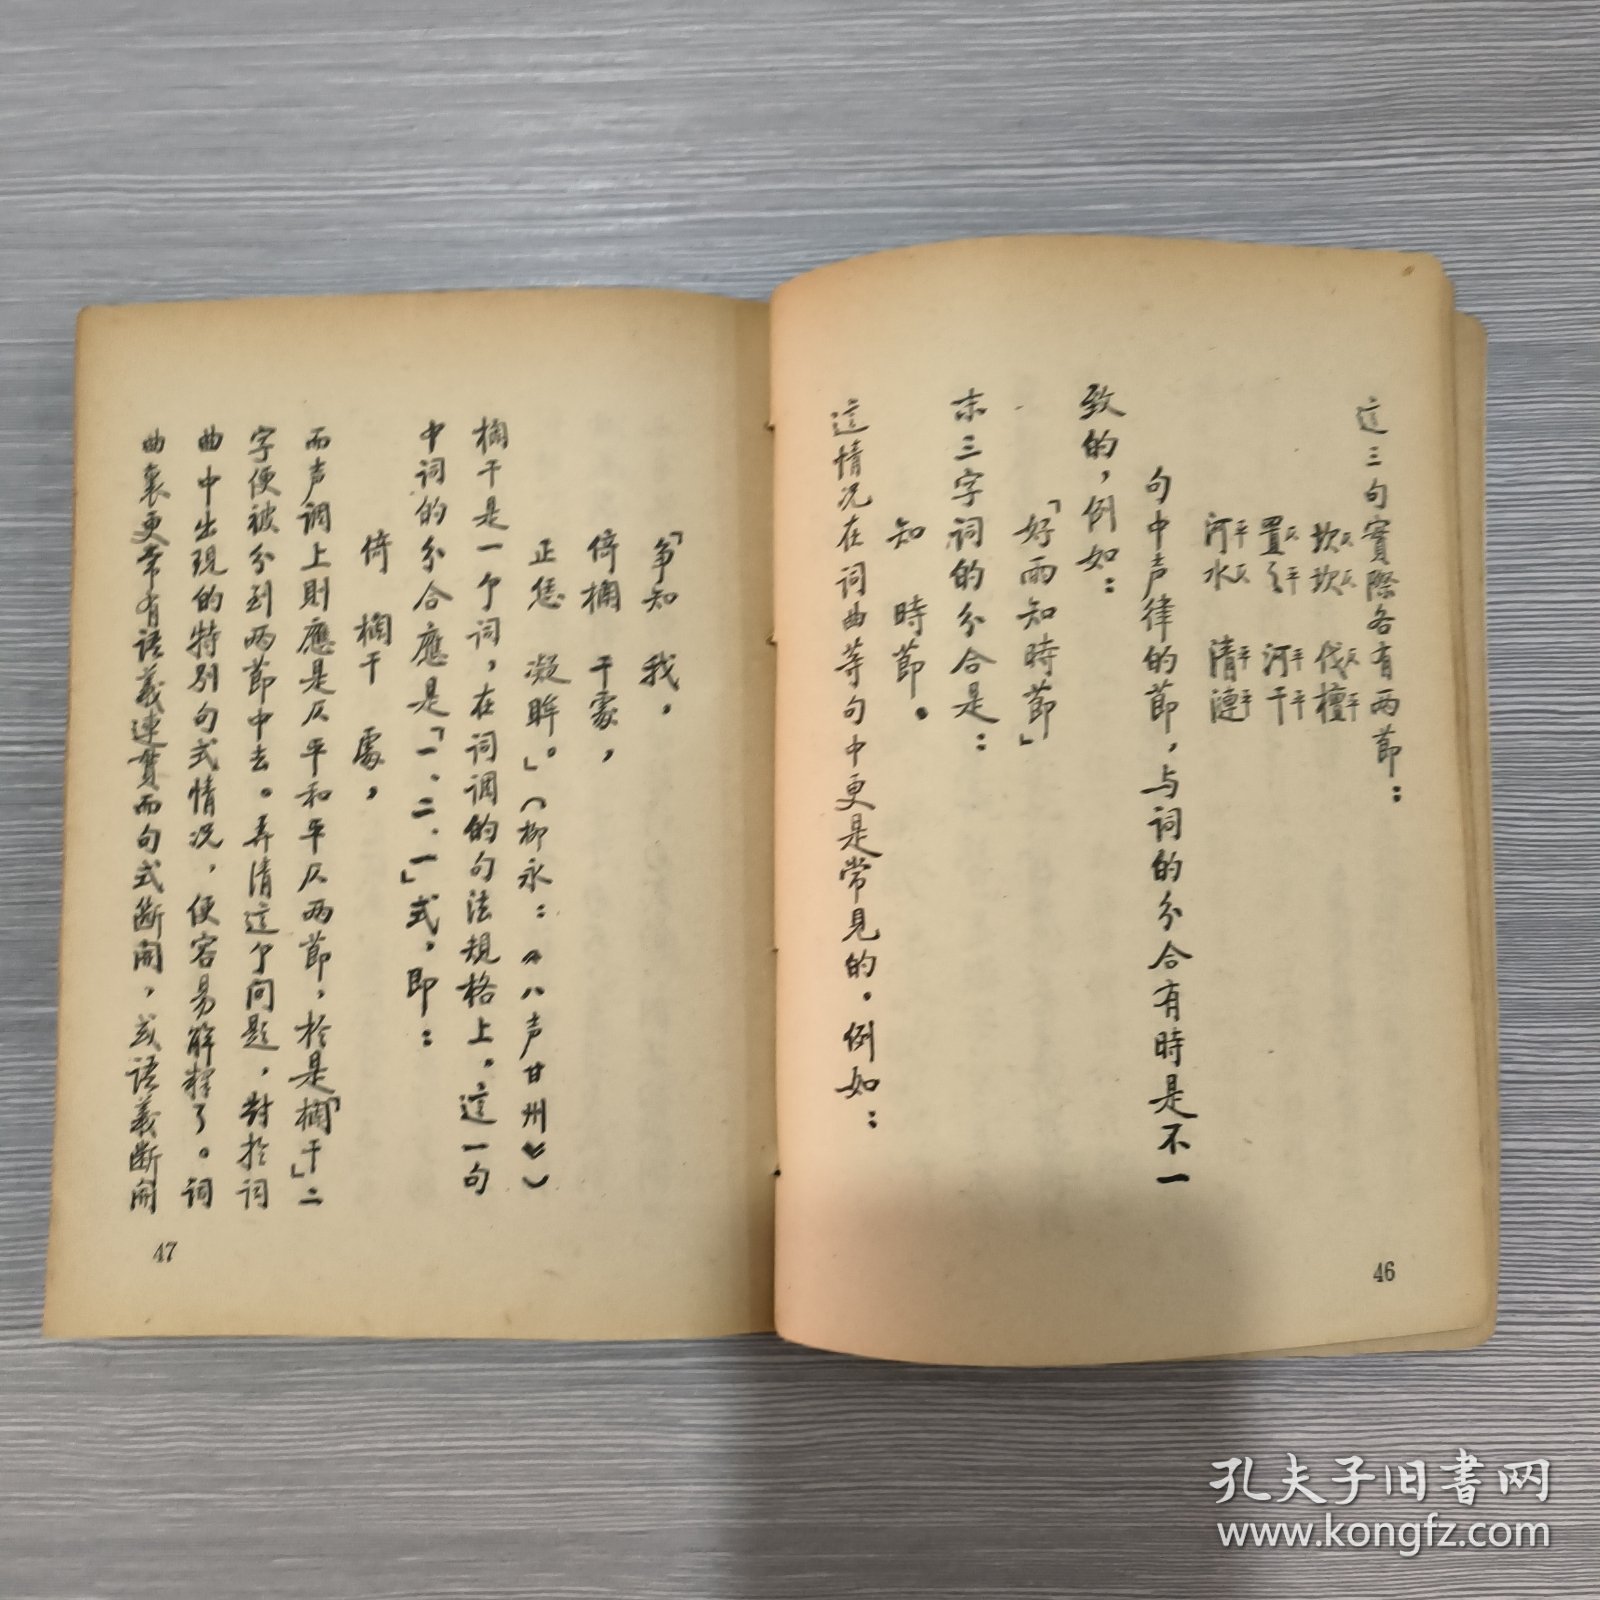 这三句實際各有兩節：
坎仄坎仄　伐仄檀平
置仄之平　河平干平
河平水仄　清平漣平
句中声律的節，与词的分合有時是不一
致的，例如：
「好雨知時節」
末三字词的分合是：
知　時節。
這情况在词曲等句中更是常見的。例如：
46
「争知　我，
倚欄　干處，
正恁　凝眸。」（柳永：《八声甘州》）
欄干是一个词，在词调的句法規格上。這一句
中词的分合應是「一、二、一」式，即：
倚　欄干　處，
而声调上則應是仄平和平仄两節，於是「欄干」二
字便被分到两節中去。弄清這个问题，對於词
曲中出現的特别句式情况，便容易解釋了。词
曲裏更常有語義連貫而句式断開，或語義断開
47
孔夫子旧書网
www.kongfz.com